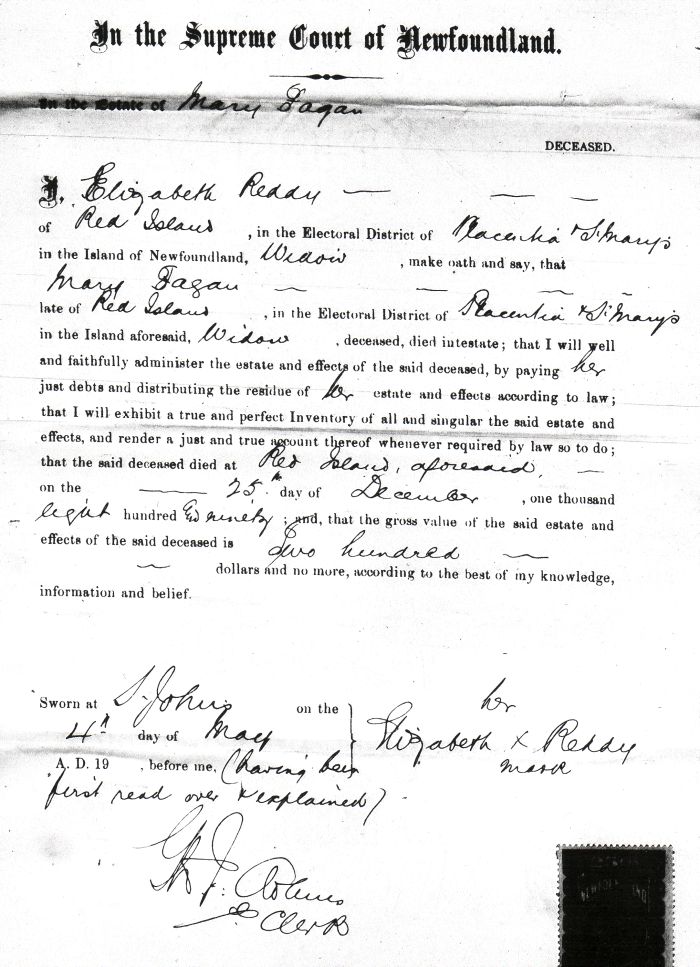 In the Supreme Court of Newfoundland.
In the Estate of Mary Fagan
DECEASED.
I, Elizabeth Reddy
of Red Island , in the Electoral District of Placentia & St Mary's
in the Island of Newfoundland, Widow , make oath and say, that
Mary Fagan
late of Red Island , in the Electoral District of Placentia & St Mary's
in the Island aforesaid, Widow , deceased, died intestate; that I will well
and faithfully administer the estate and effects of the said deceased, by paying her
just debts and distributing the residue of her estate and effects according to law;
that I will exhibit a true and perfect Inventory of all and singular the said estate and
effects, and render a just and true account thereof whenever required by law so to do;
that the said deceased died at Red Island, aforesaid,
on the 25th day of December , one thousand
eight hundred and ninety ; and, that the gross value of the said estate and
effects of the said deceased is Two hundred
dollars and no more, according to the best of my knowledge,
information and belief.
Sworn at St. John's on the
4th day of May
A. D. 19 , before me, (having been
first read over & explained)
her
Elizabeth X Reddy
mark
Clerk